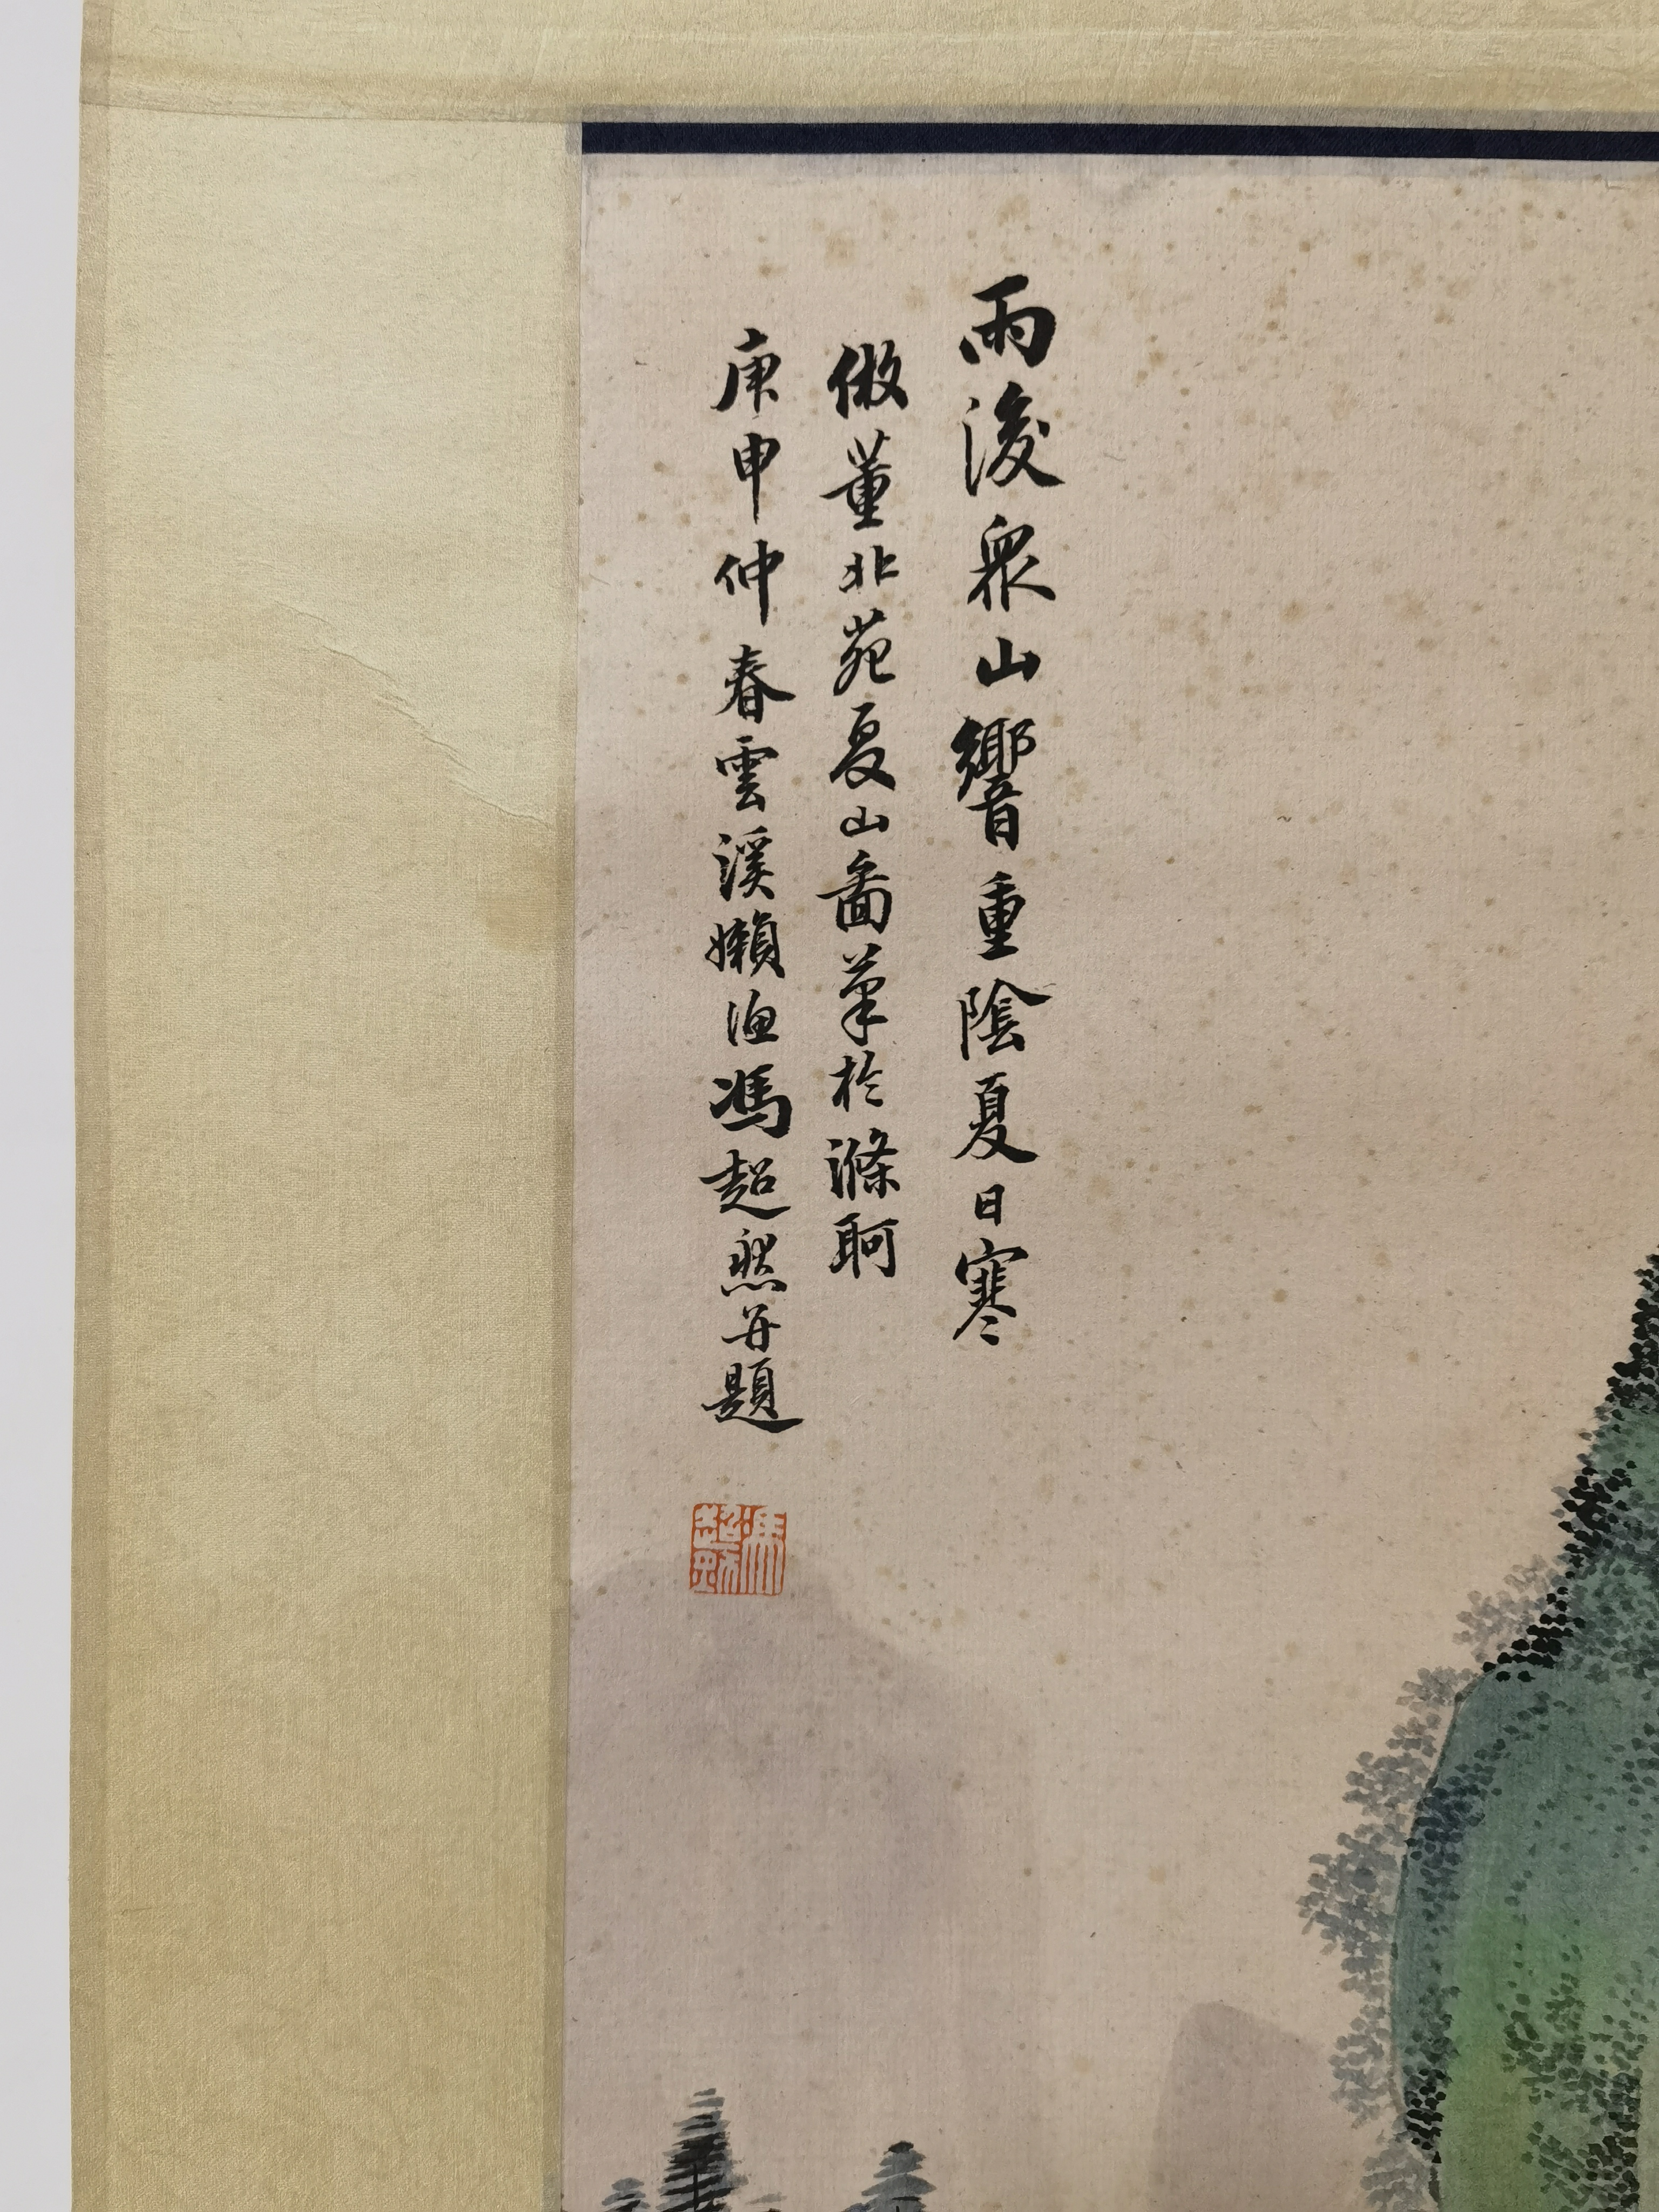 雨後眾山響重陰夏日寒
倣董北苑夏山啚筆於滌舸
庚申仲春雲溪嬾漁馮超然并題
馮超然